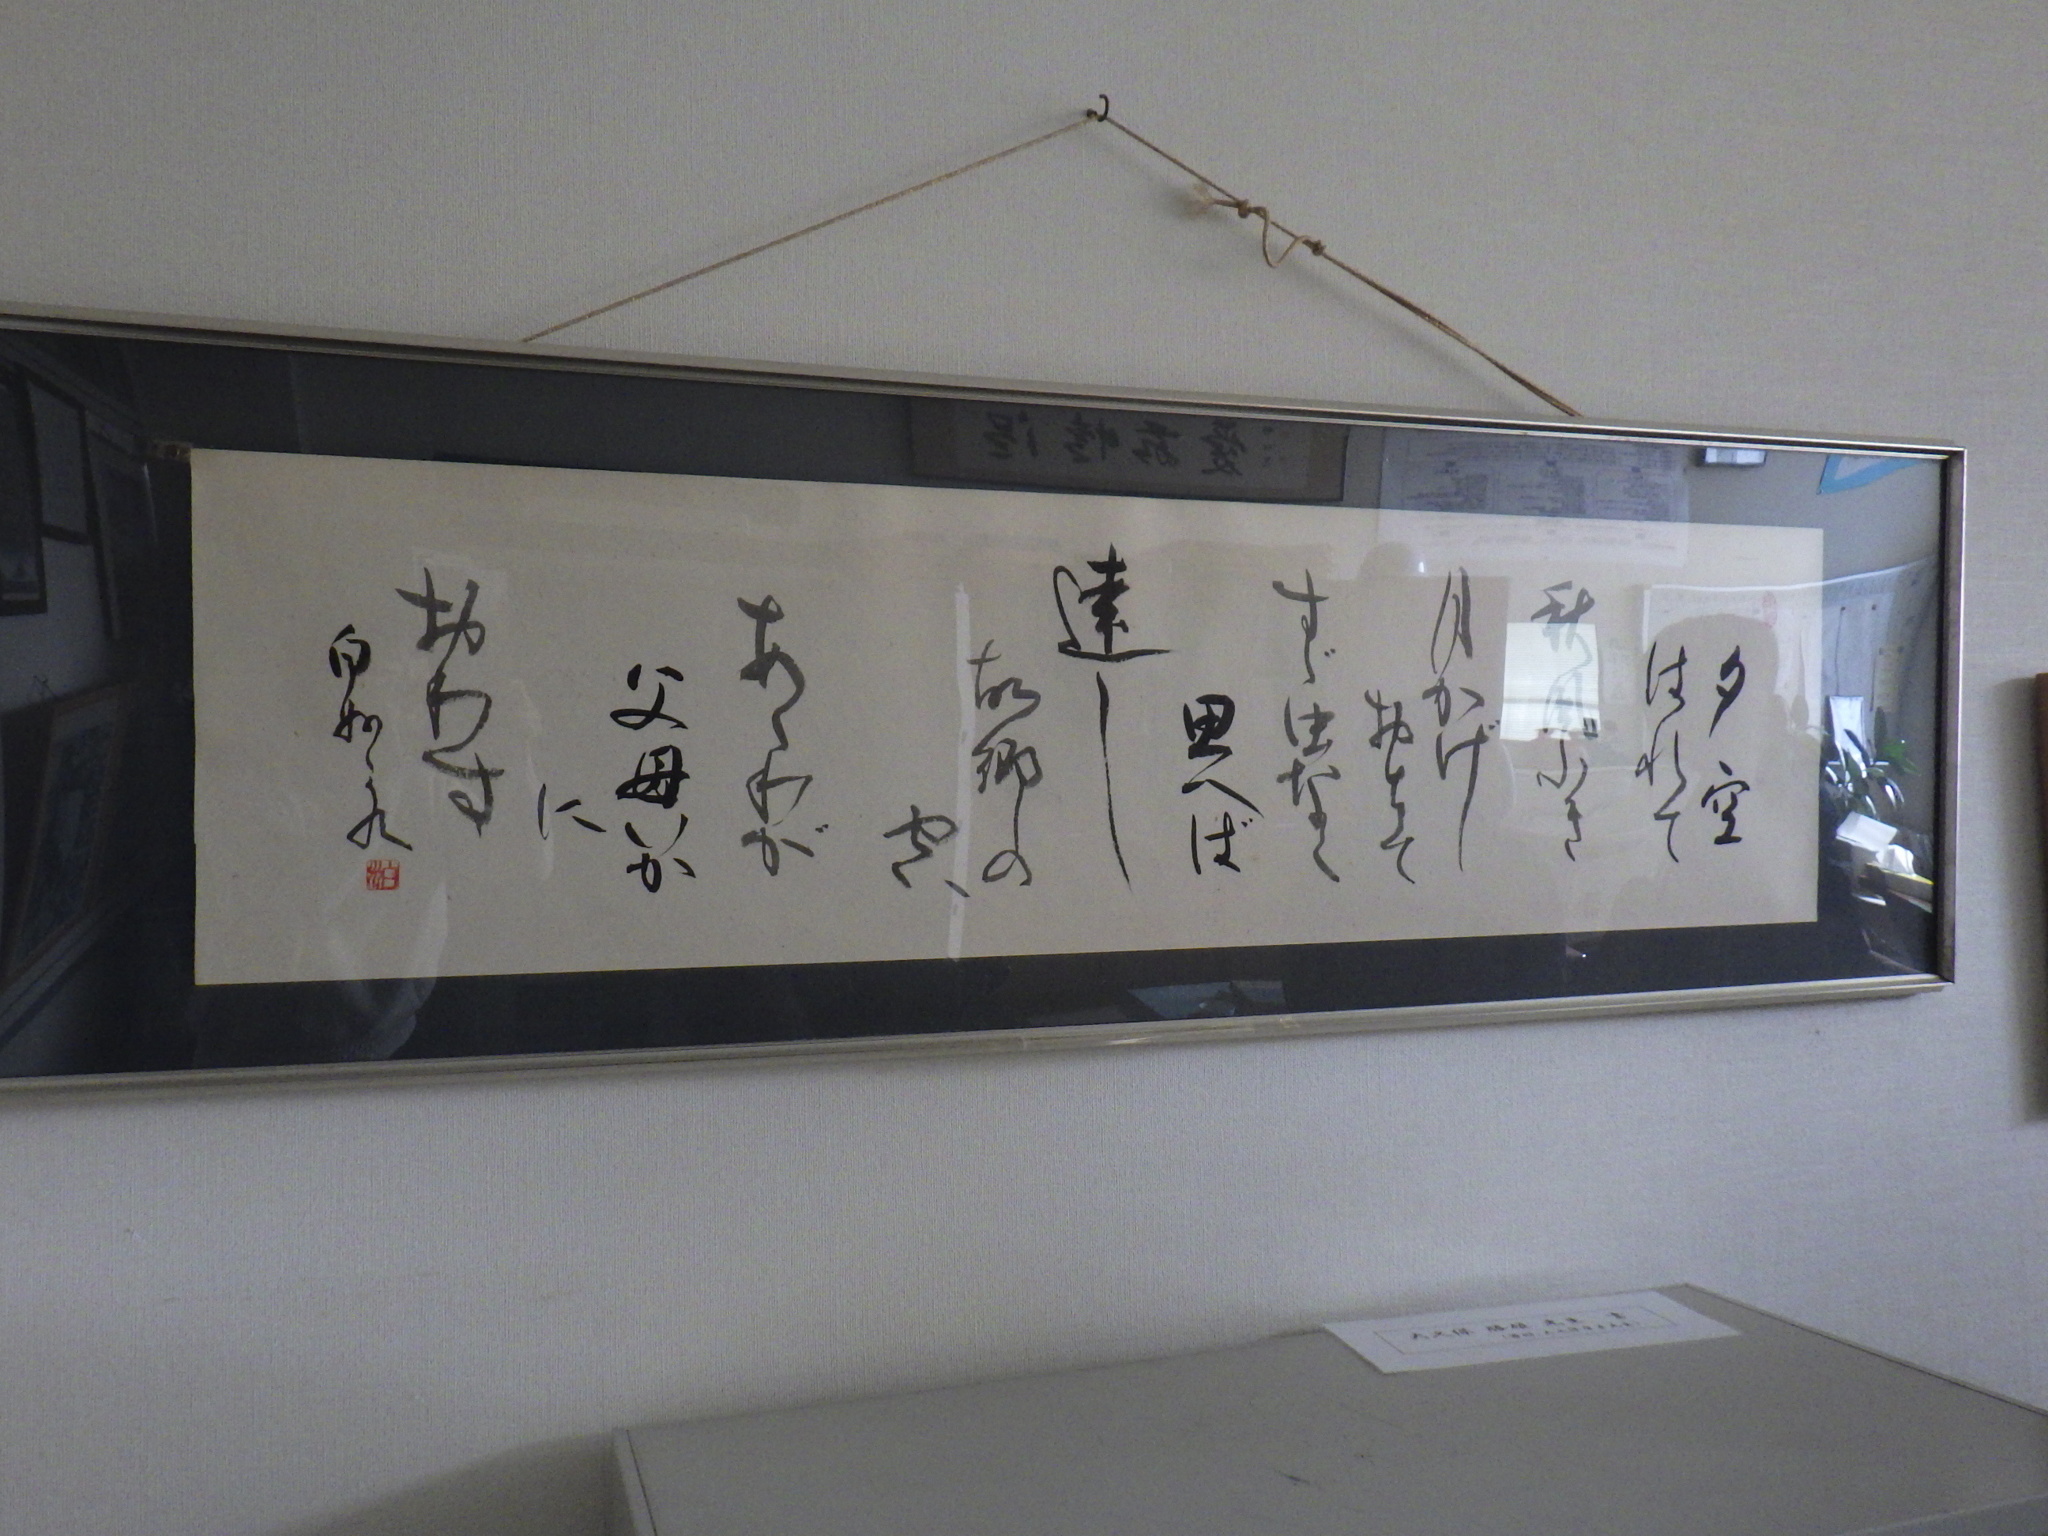 夕空
はれて
秋風ふき
月かげ
おちて
すゞ虫なく
思へば
遠し
故郷の
空
あゝわが
父母いか
に
おわす